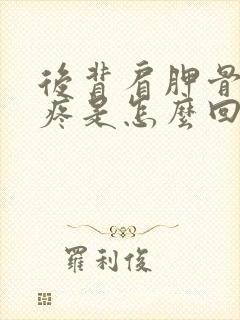 後背肩胛骨
疼是怎麼回
羅利俊